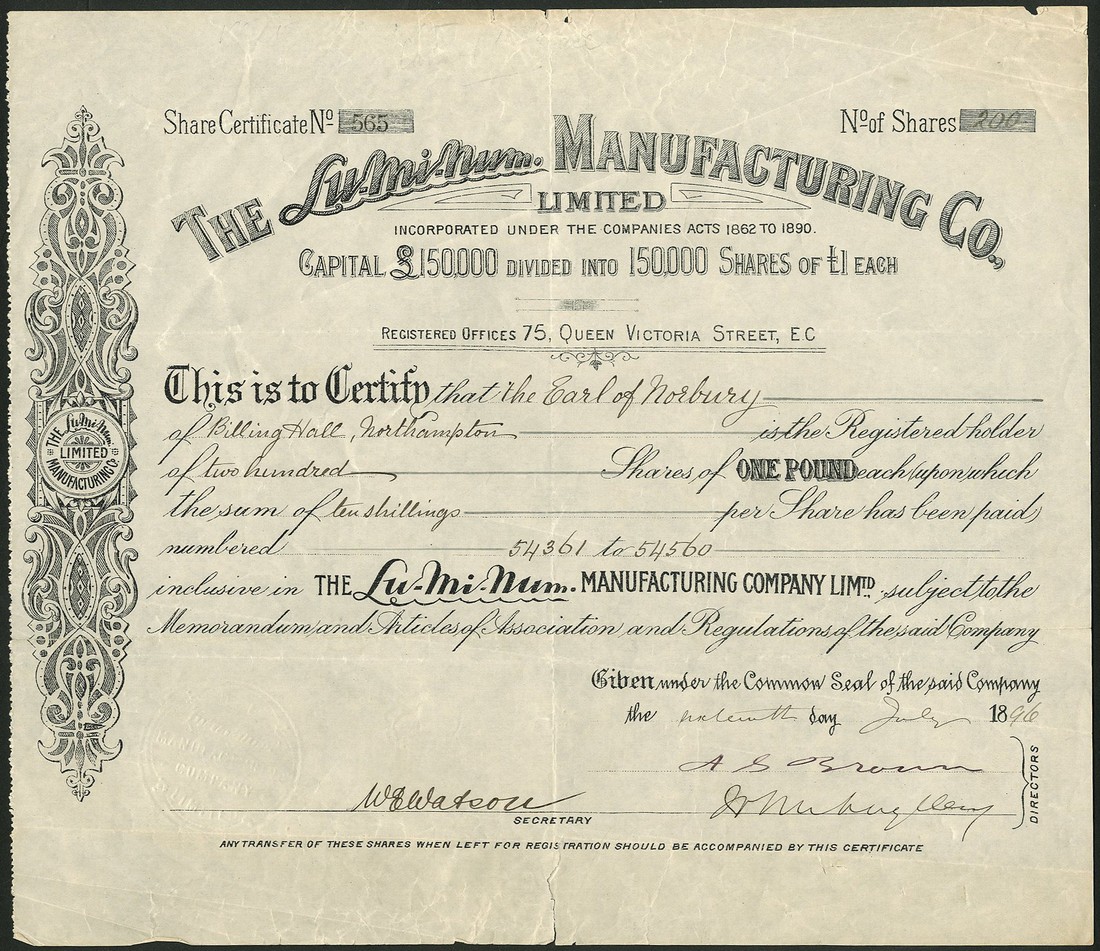 Share Certificate No 565
No of Shares 200
THE Lu-Mi-Num. MANUFACTURING CO.,
LIMITED
INCORPORATED UNDER THE COMPANIES ACTS 1862 TO 1890.
CAPITAL £150,000 DIVIDED INTO 150,000 SHARES OF £1 EACH
REGISTERED OFFICES 75, QUEEN VICTORIA STREET, E.C
This is to Certify that The Earl of Norbury
of Billing Hall, Northampton is the Registered holder
of two hundred Shares of ONE POUND each upon which
the sum of ten shillings per Share has been paid
numbered 54361 to 54560
inclusive in THE Lu-Mi-Num. MANUFACTURING COMPANY LIMTD. subject to the
Memorandum and Articles of Association and Regulations of the said Company
Given under the Common Seal of the said Company
the day July 1896
A S Brown
W E Watson
SECRETARY
DIRECTORS
ANY TRANSFER OF THESE SHARES WHEN LEFT FOR REGISTRATION SHOULD BE ACCOMPANIED BY THIS CERTIFICATE
THE Lu-Mi-Num.
LIMITED
MANUFACTURING CO.